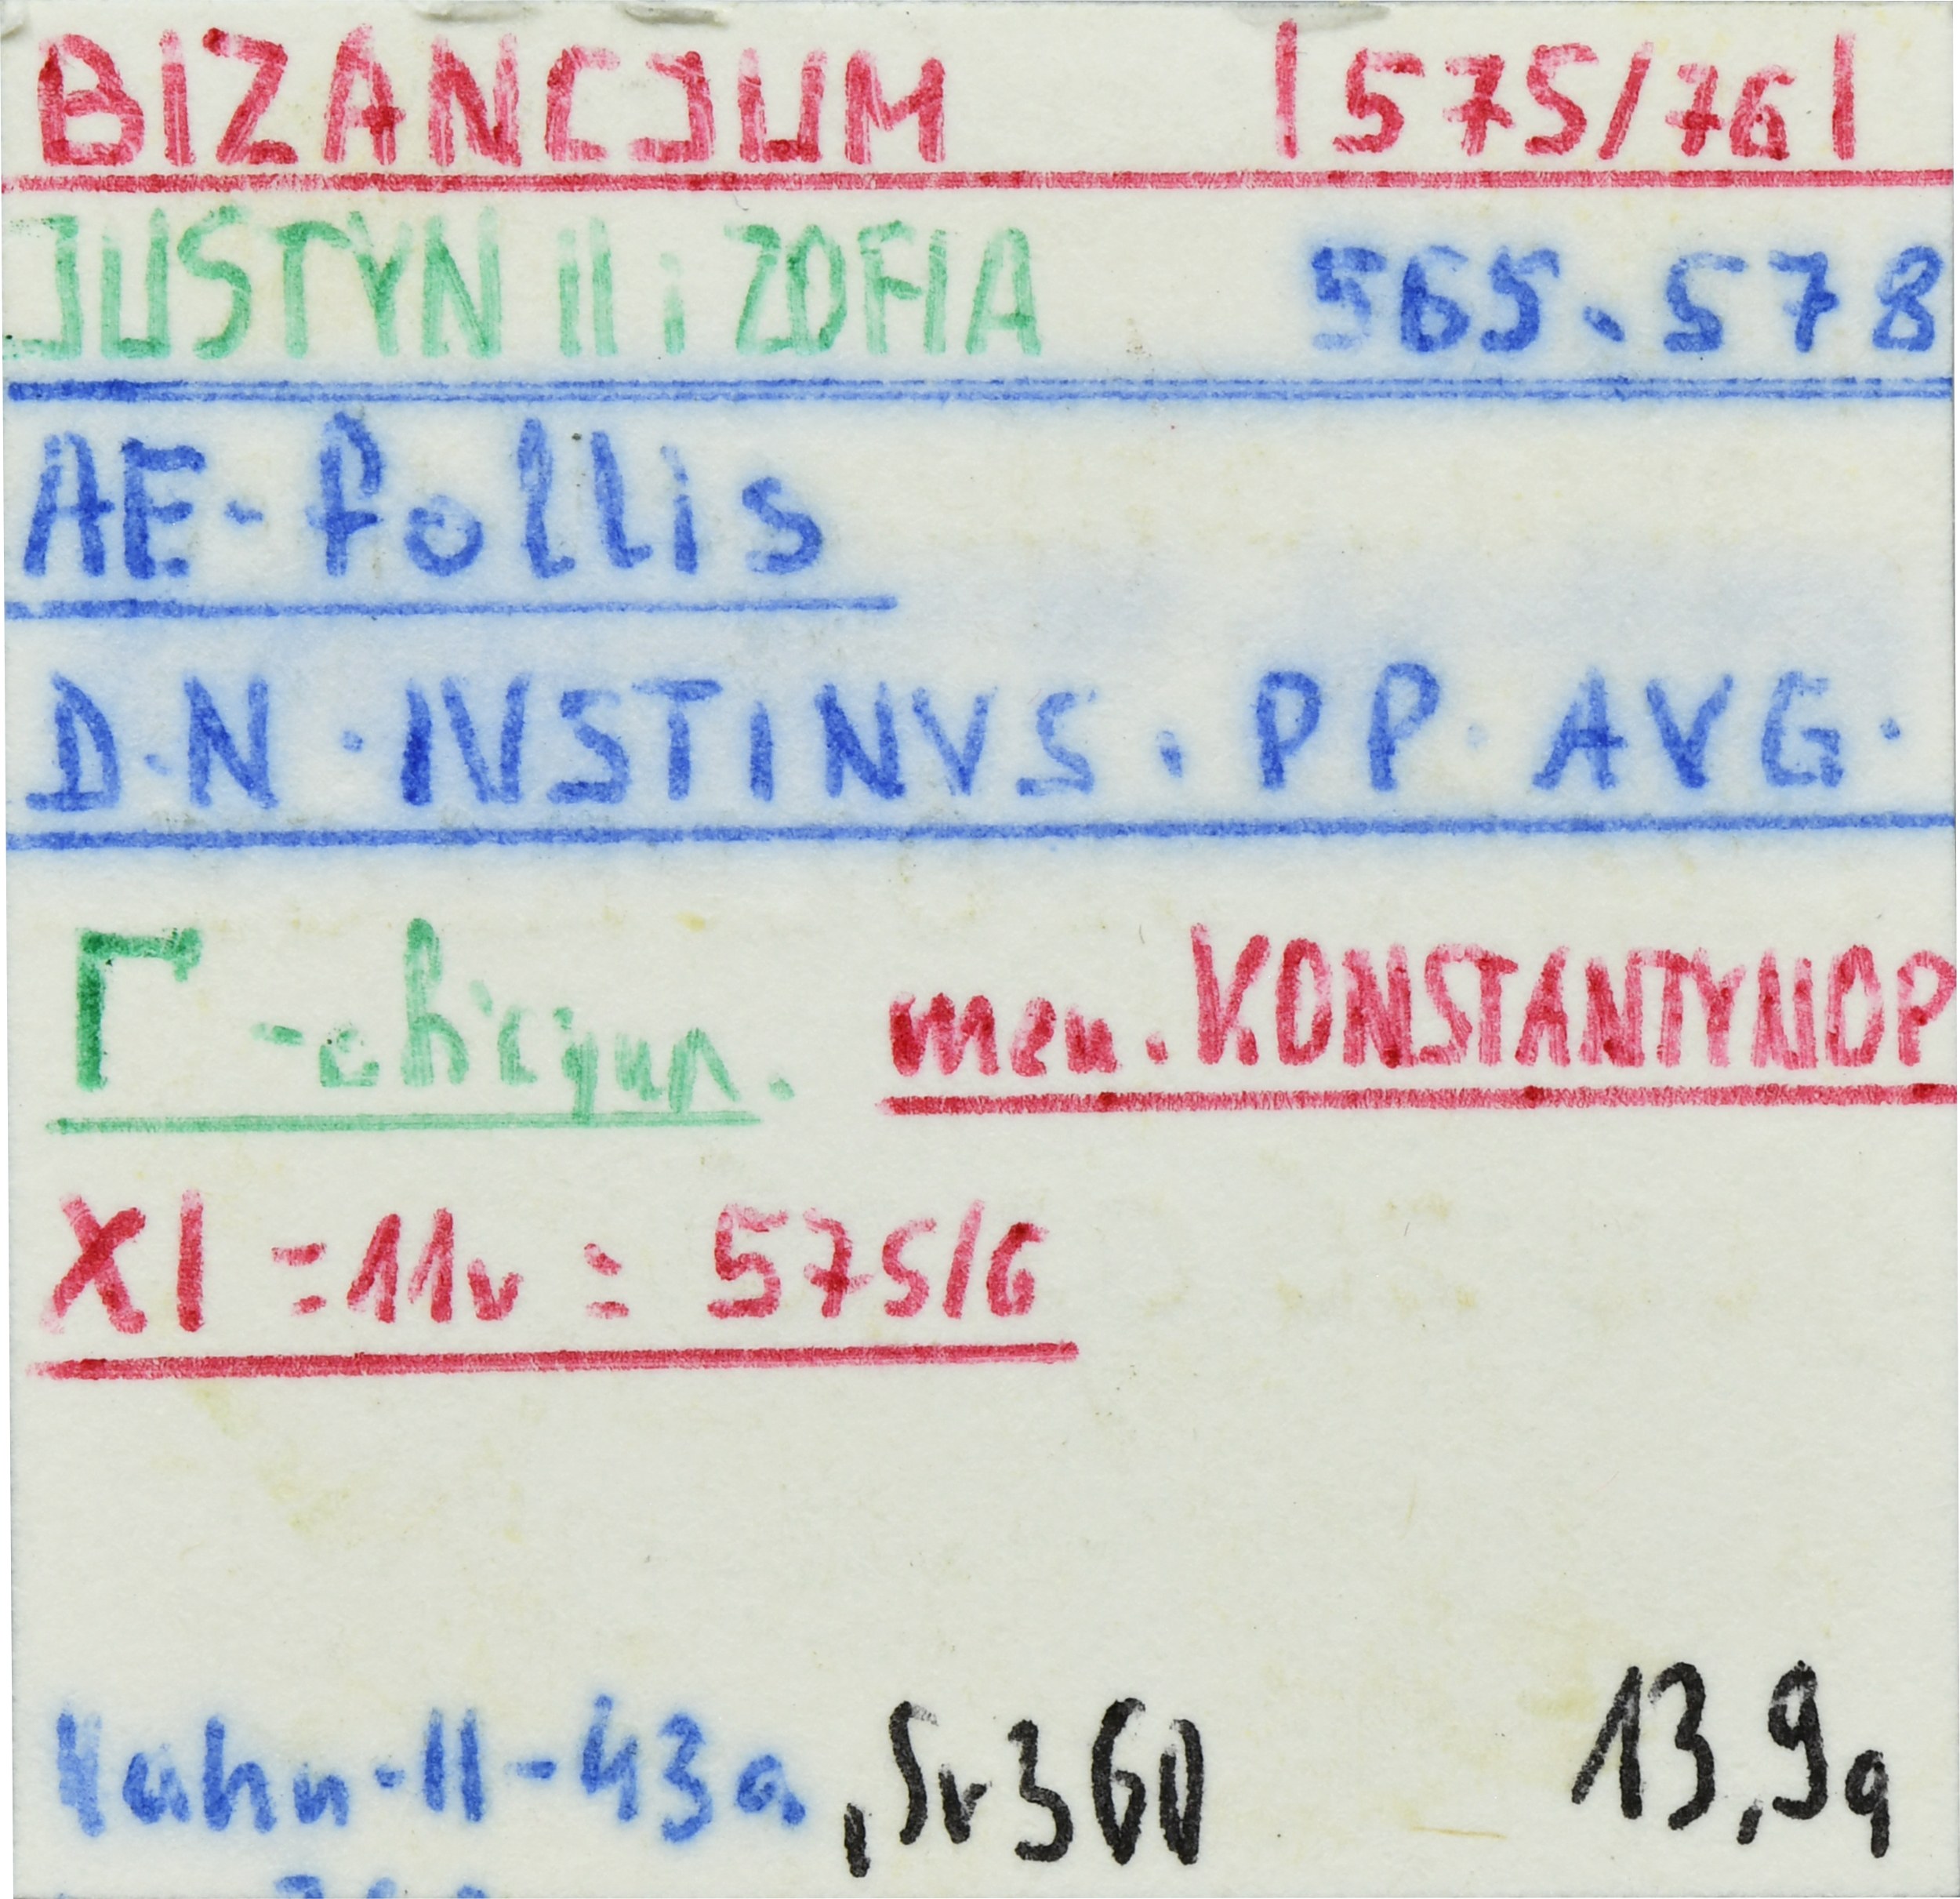 BIZANCJUM |575/76|
JUSTYN II i ZOFIA 565-578
AE-follis
D·N·IVSTINVS·PP·AVG·
Γ - men. KONSTANTYNOP
XI = 11r = 575/6
Hahn-II-43a, Sr 360 13,9g